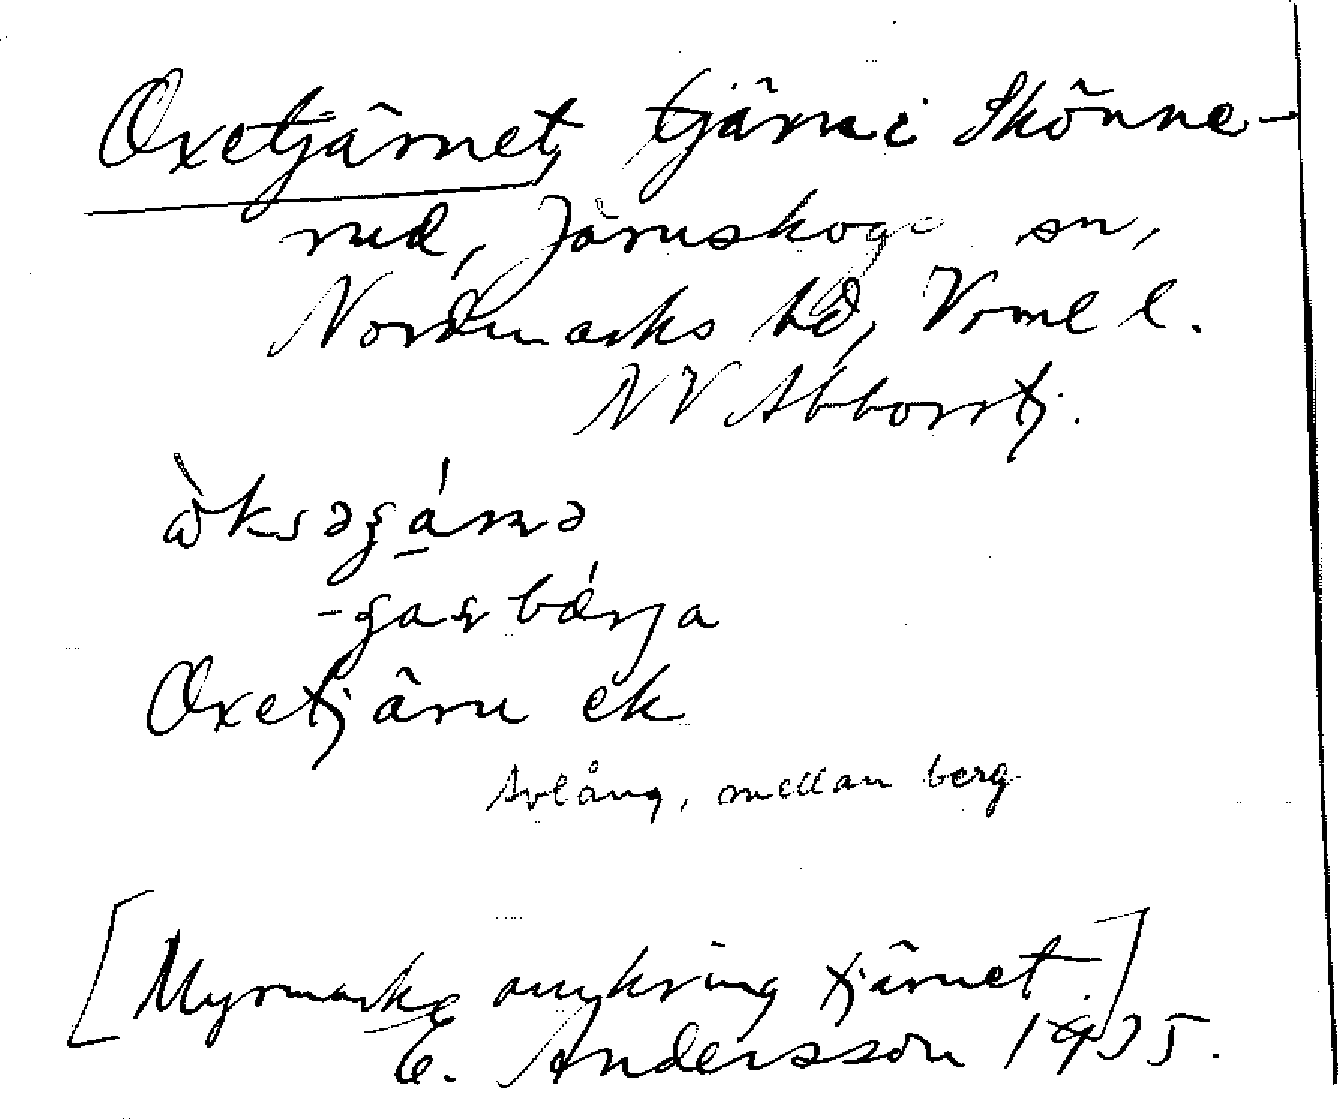 Oxetjärnet, tjärn i Skönne-
rud, Järnskogs sn,
Nordmarks hd, Vrml l.
NV Abborrtj.
Oxetjärn ek
Avlång, mellan berg.
[Myrmark omkring tjärnet.]
E. Andersson 1935.